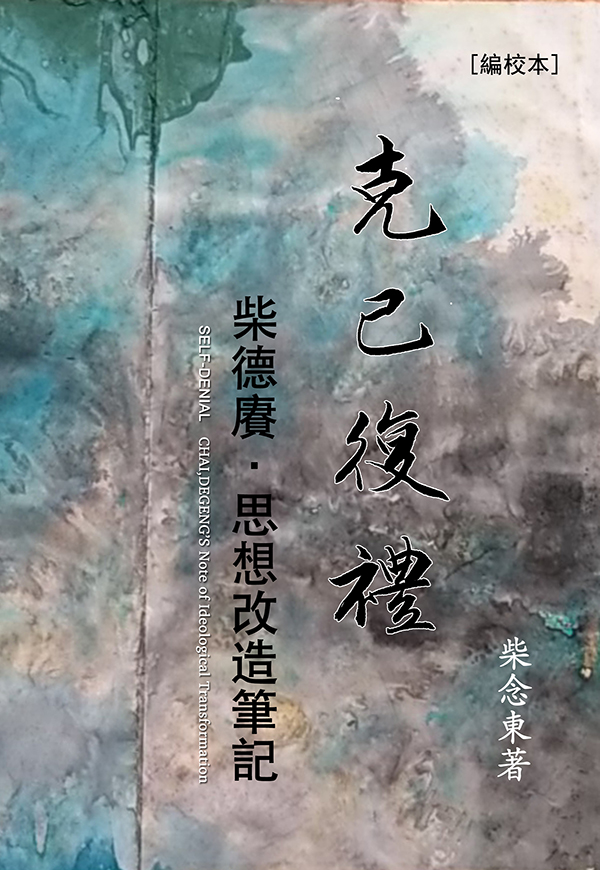 [編校本]
克己復禮
柴德賡·思想改造筆記
SELF-DENIAL CHAI,DEGENG'S Note of Ideological Transformation
柴念東著